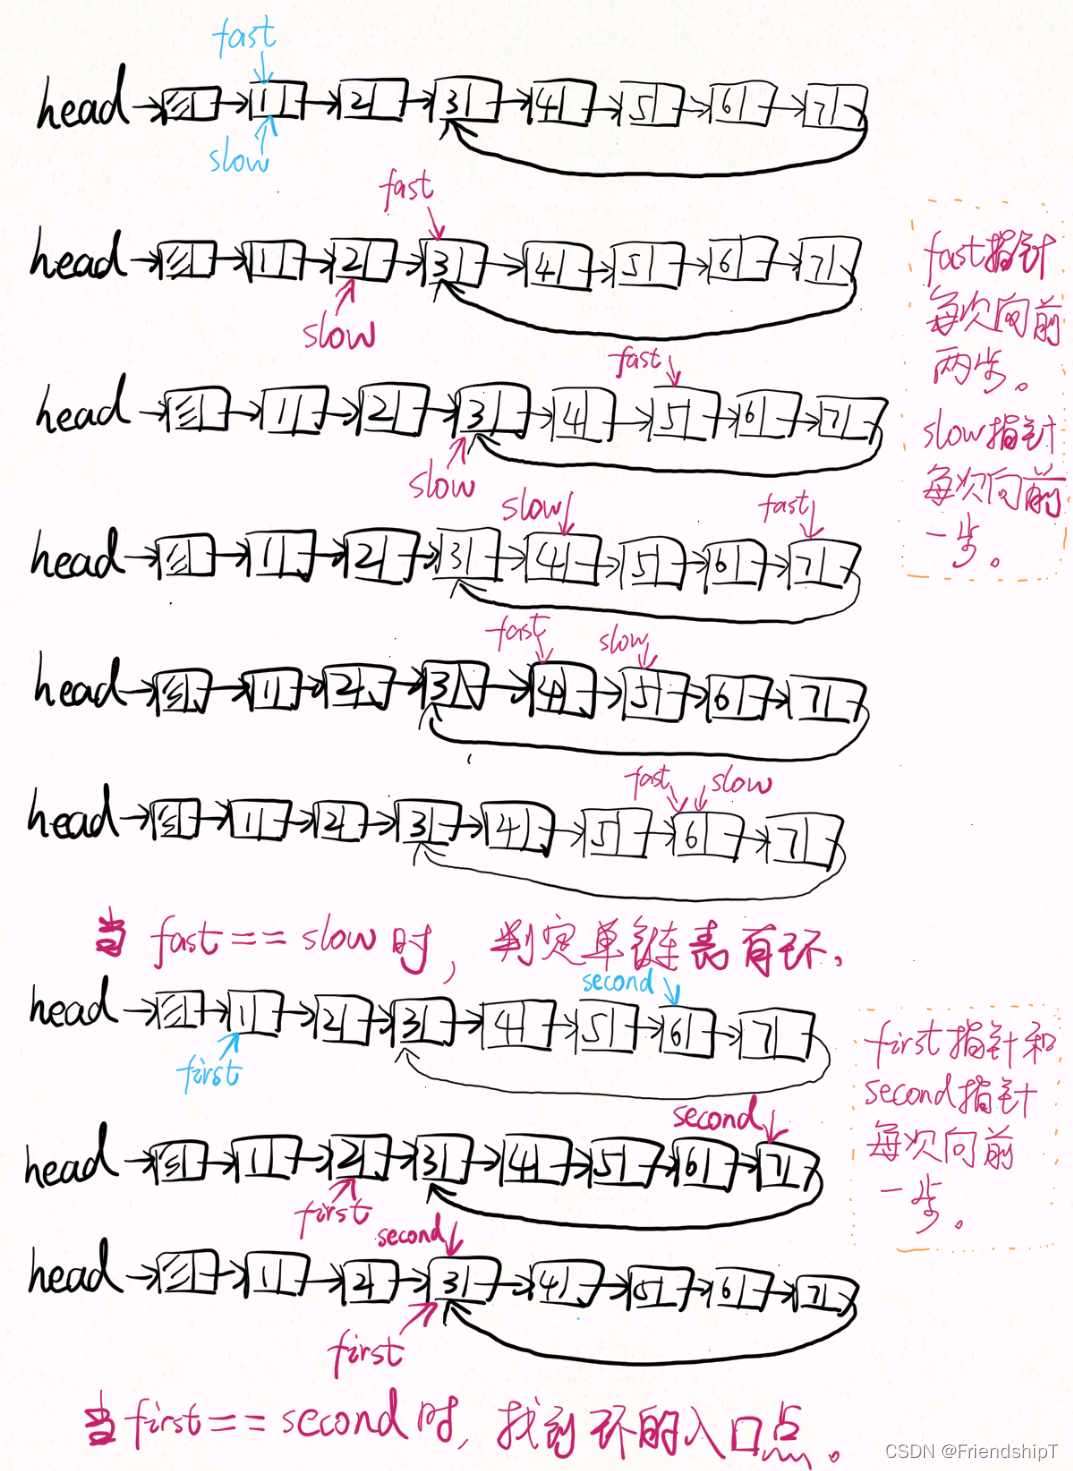 fast
head 1 2 3 4 5 6 7
slow
fast
head 1 2 3 4 5 6 7
slow
fast指针
每次向前
两步。
slow指针
每次向前
一步。
fast
head 1 2 3 4 5 6 7
slow
slow fast
head 1 2 3 4 5 6 7
fast slow
head 1 2 3 4 5 6 7
fast slow
head 1 2 3 4 5 6 7
当 fast == slow 时, 判定单链表有环.
second
head 1 2 3 4 5 6 7
first
first指针和
second指针
每次向前
一步。
second
head 1 2 3 4 5 6 7
first
second
head 1 2 3 4 5 6 7
first
当first == second时, 找到环的入口点。
CSDN @FriendshipT